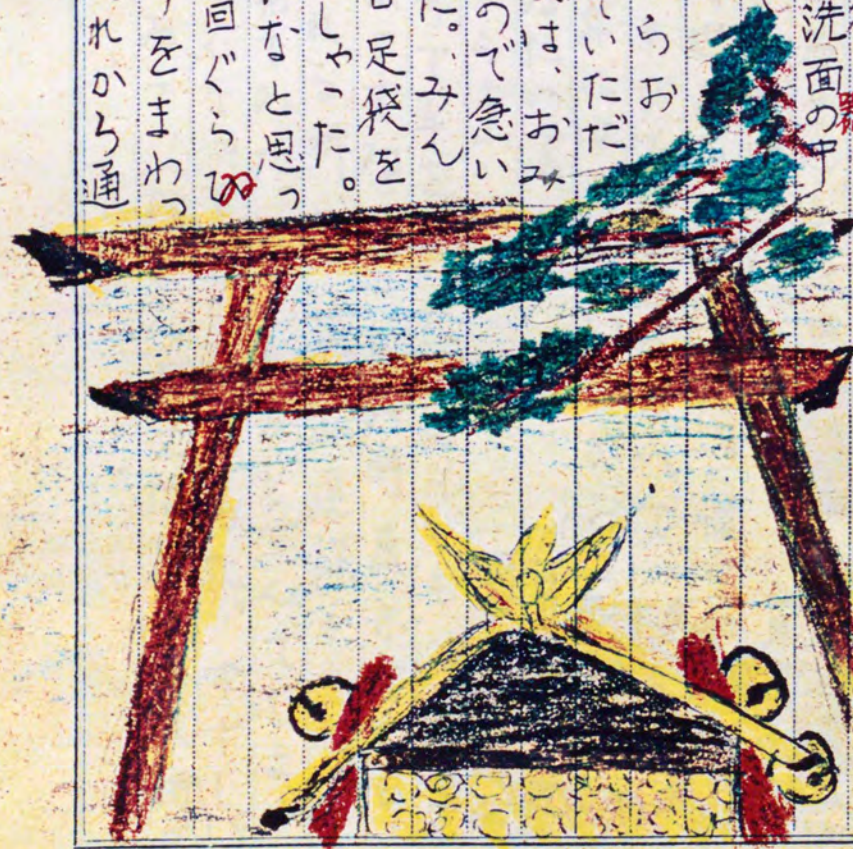 洗面の中
らお
ていただ
は、おみ
ので急い
た。みん
足袋を
しゃった。
なと思っ
回ぐら
をまわっ
れから通